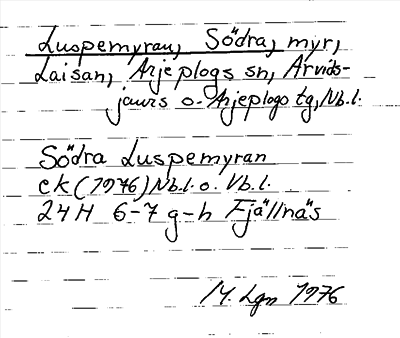 Luspemyran, Södra, myr,
Laisan, Arjeplogs sn, Arvids-
jaurs o. Arjeplogs tg, Nb.l.
Södra Luspemyran
ek (1976) Nb.l. o. Vb.l.
24H 6-7 g-h Fjällnäs
M. Lgn 1976